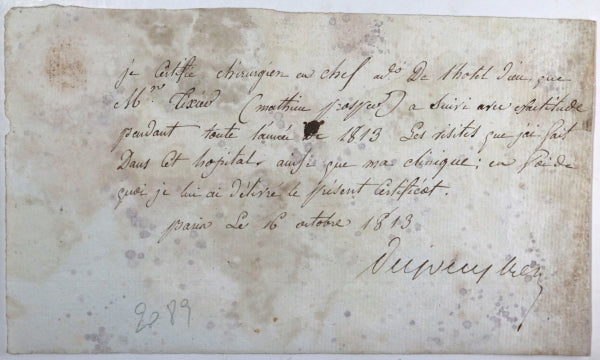 je certifie chirurgien en chef adj. De l'hotel Dieu, que
Mr. Tixier (mathieu prosper) a suivi avec exactitude
pendant toute l'année de 1813 Les visites que j'ai fait
Dans cet hopital, ainsi que ma clinique; en foi de
quoi je lui ai délivré le présent Certificat.
paris Le 16 octobre 1813
Dupuytren
2089